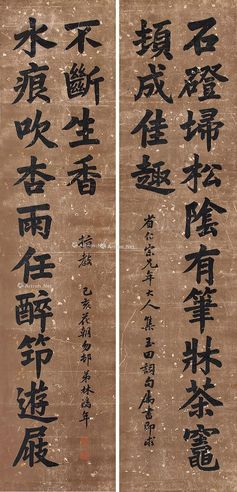 石磴埽松陰有筆牀茶竈
頓成佳趣
省仁宗兄年大人集玉田詞句屬書即求
水痕吹杏雨任醉筇遊屐
不斷生香
指教 己亥花朝勿邨弟林鴻年